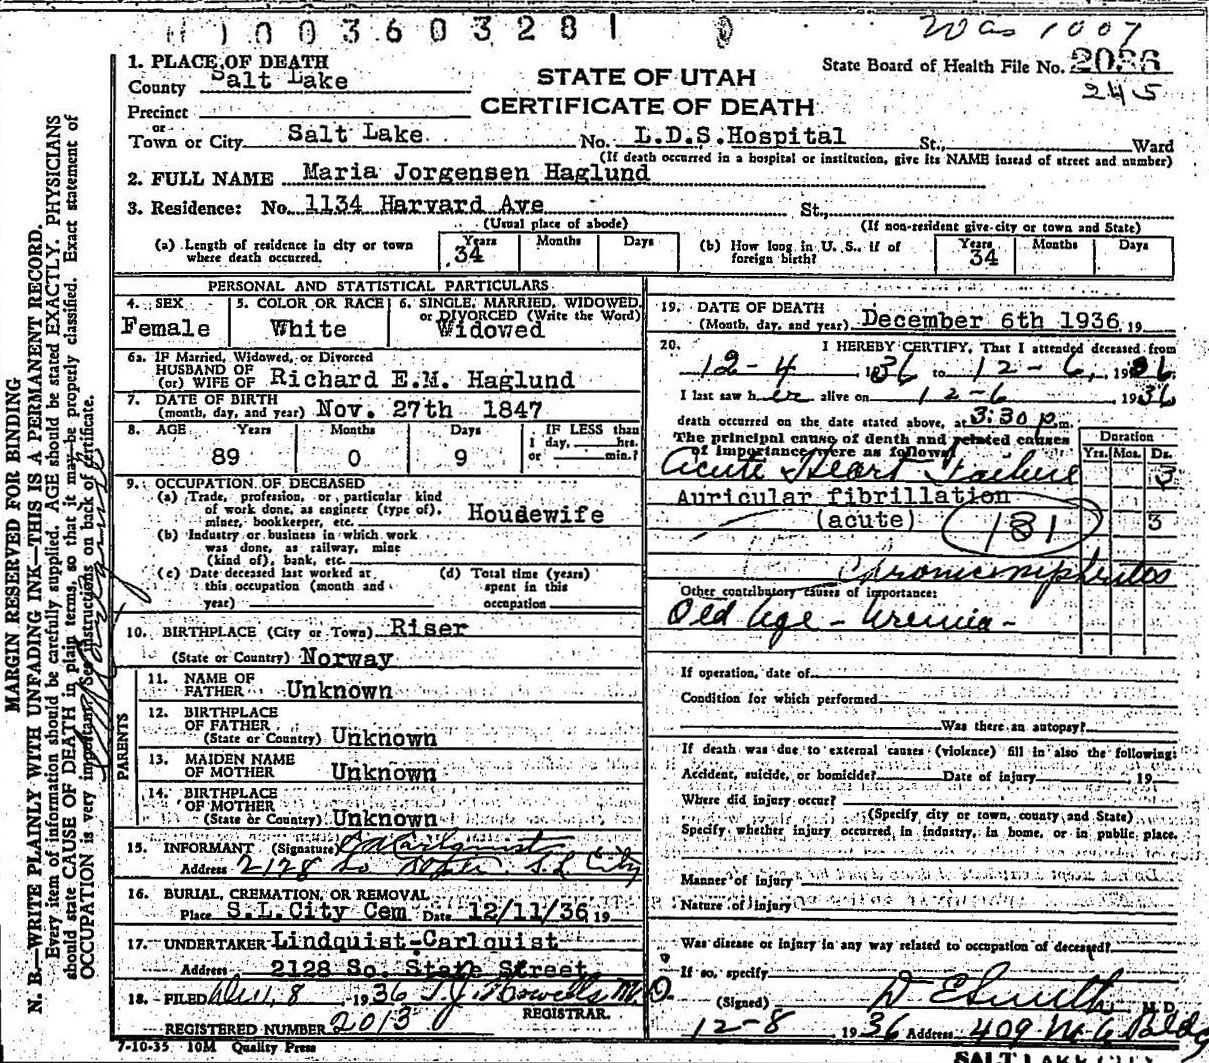 1003603281 0
Was 1007
1. PLACE OF DEATH
County Salt Lake
STATE OF UTAH
CERTIFICATE OF DEATH
State Board of Health File No. 2036
245
Precinct
or
Town or City Salt Lake No. L.D.S.Hospital St., Ward
(If death occurred in a hospital or institution, give its NAME instead of street and number)
2. FULL NAME Maria Jorgensen Haglund
3. Residence: No. 1134 Harvard Ave St.,
(Usual place of abode) (If non-resident give city or town and State)
(a) Length of residence in city or town where death occurred. Years 34 Months Days
(b) How long in U. S., if of foreign birth? Years 34 Months Days
PERSONAL AND STATISTICAL PARTICULARS
4. SEX Female
5. COLOR OR RACE White
6. SINGLE, MARRIED, WIDOWED, or DIVORCED (Write the Word) Widowed
6a. IF Married, Widowed, or Divorced
HUSBAND OF
(or) WIFE OF Richard E.M. Haglund
7. DATE OF BIRTH
(month, day, and year) Nov. 27th 1847
8. AGE Years Months Days IF LESS than
1 day, hrs.
or min.?
89 0 9
9. OCCUPATION OF DECEASED
(a) Trade, profession, or particular kind
of work done, as engineer (type of),
miner, bookkeeper, etc. Housewife
(b) Industry or business in which work
was done, as railway, mine
(kind of), bank, etc.
(c) Date deceased last worked at
this occupation (month and
year)
(d) Total time (years)
spent in this
occupation
10. BIRTHPLACE (City or Town) Riser
(State or Country) Norway
PARENTS
11. NAME OF
FATHER Unknown
12. BIRTHPLACE
OF FATHER
(State or Country) Unknown
13. MAIDEN NAME
OF MOTHER Unknown
14. BIRTHPLACE
OF MOTHER
(State or Country) Unknown
15. INFORMANT (Signature) Carlquist
Address 2128 So State S.L City
16. BURIAL, CREMATION, OR REMOVAL
Place S.L.City Cem Date 12/11/36 19
17. UNDERTAKER Lindquist-Carlquist
Address 2128 So. State Street
18. FILED Dec, 8 1936 T. J. Howells M.D.
REGISTRAR.
REGISTERED NUMBER 2013
7-10-35 10M Quality Press
19. DATE OF DEATH
(Month, day, and year) December 6th 1936 19
20. I HEREBY CERTIFY, That I attended deceased from
12-4 1936 to 12-6, 1936
I last saw her alive on 12-6 1936
death occurred on the date stated above, at 3:30 p.m.
The principal cause of death and related causes
of importance were as follows:
Duration
Yrs. Mos. Ds.
Acute Heart Failure 3
Auricular fibrillation
(acute) 181 3
Chronic nephritis
Other contributory causes of importance:
Old age - Uremia -
If operation, date of
Condition for which performed
Was there an autopsy?
If death was due to external causes (violence) fill in also the following:
Accident, suicide, or homicide? Date of injury 19
Where did injury occur?
(Specify city or town, county and State)
Specify whether injury occurred in industry, in home, or in public place.
Manner of injury
Nature of injury
Was disease or injury in any way related to occupation of deceased?
If so, specify
(Signed) D E Smith M.D.
12-8 1936 Address 409 Bldg
SALT LAKE CITY
MARGIN RESERVED FOR BINDING
N. B.—WRITE PLAINLY WITH UNFADING INK—THIS IS A PERMANENT RECORD.
Every item of information should be carefully supplied. AGE should be stated EXACTLY. PHYSICIANS
should state CAUSE OF DEATH in plain terms, so that it may be properly classified. Exact statement of
OCCUPATION is very important. See instructions on back of certificate.